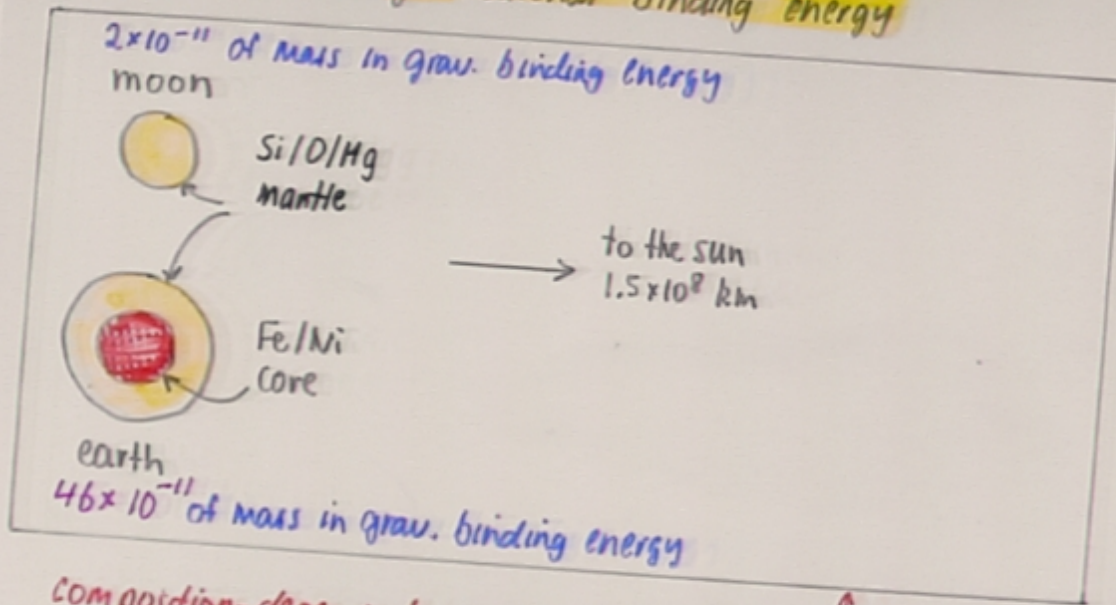 binding energy
2×10⁻¹¹ of mass in grav. binding energy
moon
Si/O/Mg
mantle
to the sun
1.5×10⁸ km
Fe/Ni
core
earth
46×10⁻¹¹ of mass in grav. binding energy
composition